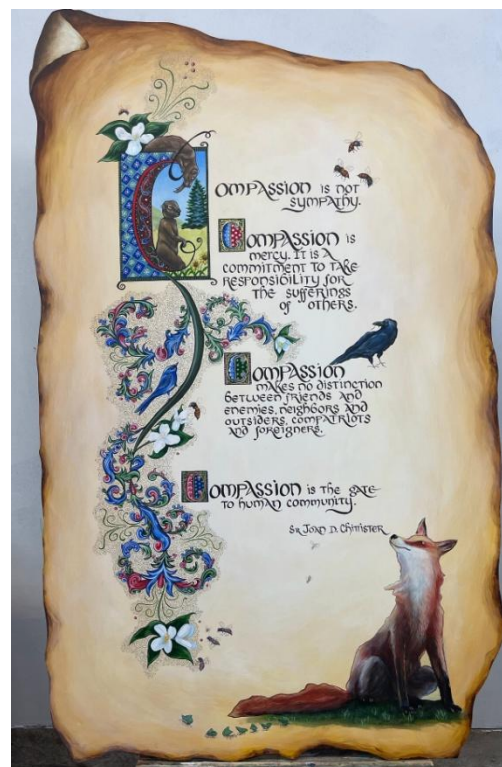 COMPASSION is not
sympathy.
COMPASSION is
mercy. It is a
commitment to take
responsibility for
the sufferings
of others.
COMPASSION
makes no distinction
between friends and
enemies, neighbors and
outsiders, compatriots
and foreigners.
COMPASSION is the gate
to human community.
Sr Joan D. Chittister